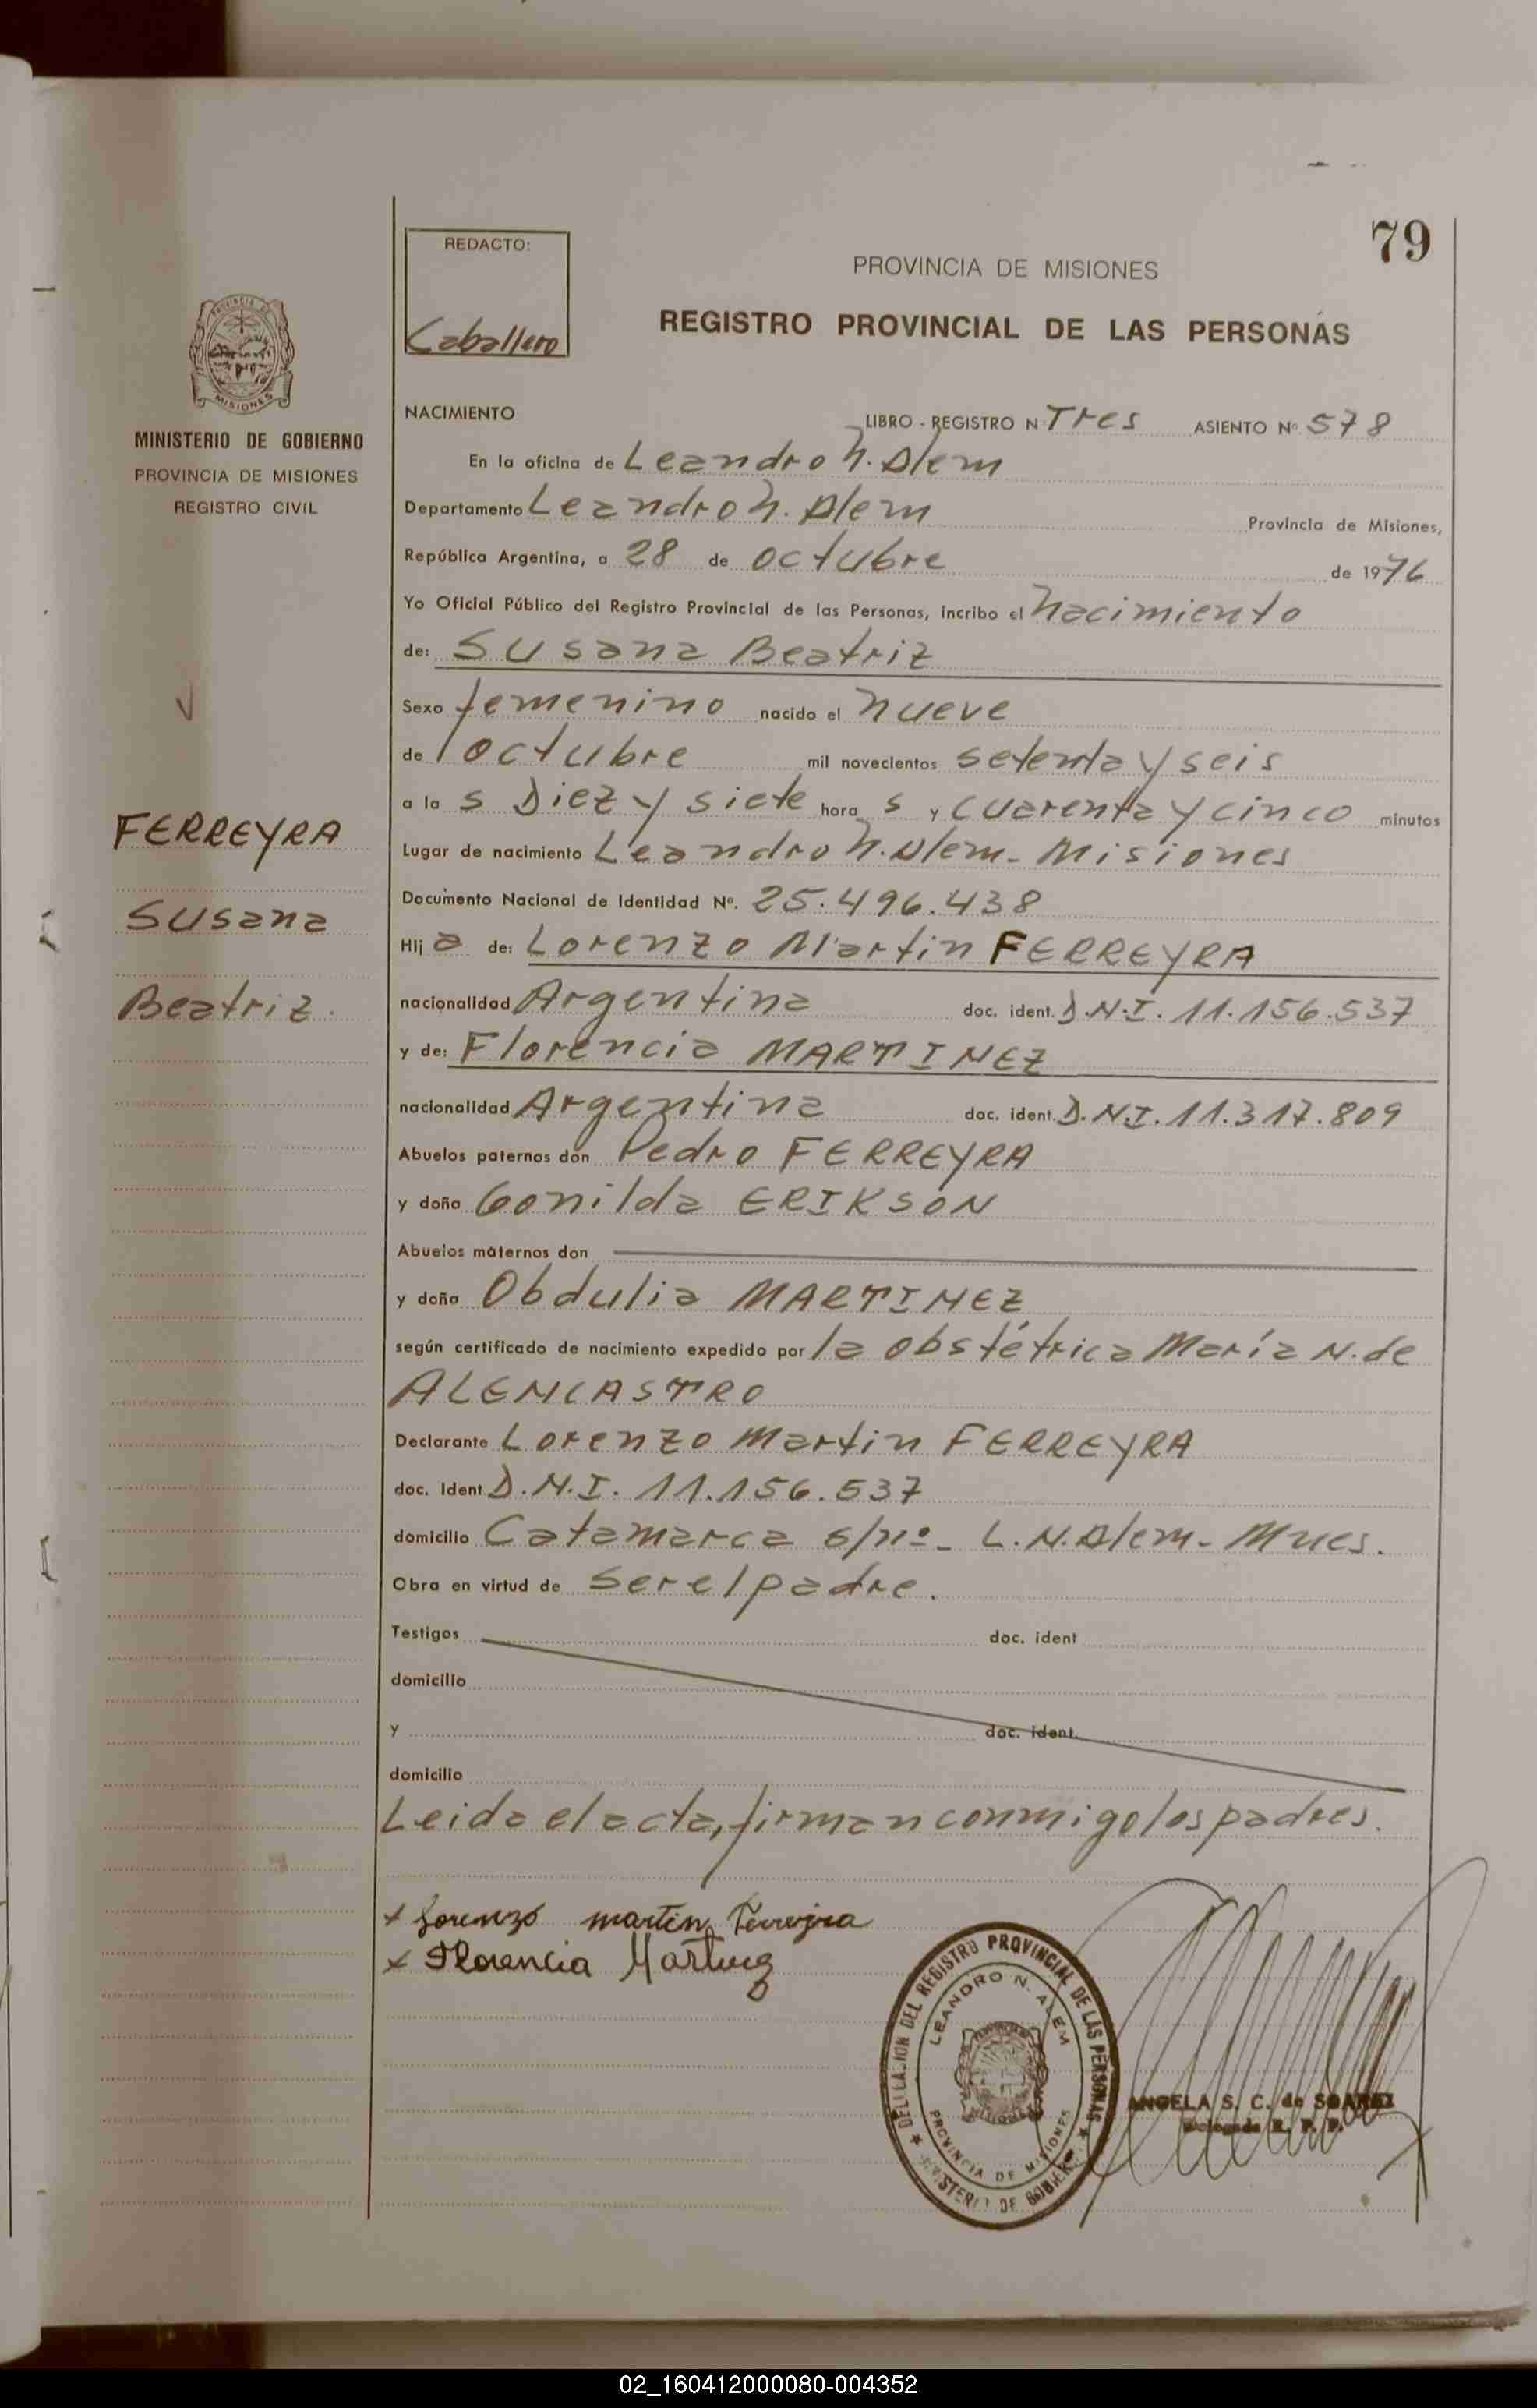 79
REDACTO:
Caballero
PROVINCIA DE MISIONES
REGISTRO PROVINCIAL DE LAS PERSONAS
PROVINCIA DE
MISIONES
MINISTERIO DE GOBIERNO
PROVINCIA DE MISIONES
REGISTRO CIVIL
FERREYRA
Susana
Beatriz.
NACIMIENTO LIBRO - REGISTRO N Tres ASIENTO Nº 578
En la oficina de Leandro N. Alem
Departamento Leandro N. Alem Provincia de Misiones,
República Argentina, a 28 de octubre de 1976
Yo Oficial Público del Registro Provincial de las Personas, incribo el nacimiento
de: Susana Beatriz
Sexo femenino nacido el nueve
de octubre mil novecientos setenta y seis
a la s Diez y siete hora s y cuarenta y cinco minutos
Lugar de nacimiento Leandro N. Alem - Misiones
Documento Nacional de Identidad Nº. 25.496.438
Hij a de: Lorenzo Martin FERREYRA
nacionalidad Argentina doc. ident. D.N.I. 11.156.537
y de: Florencia MARTINEZ
nacionalidad Argentina doc. ident. D.N.I. 11.317.809
Abuelos paternos don Pedro FERREYRA
y doña Gonilda ERIKSON
Abuelos maternos don
y doña Obdulia MARTINEZ
según certificado de nacimiento expedido por la obstétrica María N. de
ALENCASTRO
Declarante Lorenzo Martin FERREYRA
doc. Ident D.N.I. 11.156.537
domicilio Catamarca s/nº - L.N.Alem - Mnes.
Obra en virtud de ser el padre.
Testigos doc. ident
domicilio
y doc. ident.
domicilio
Leida el acta, firman conmigo los padres.
x Lorenzo martin Ferreyra
x Florencia Martinez
DELEGACION DEL REGISTRO PROVINCIAL DE LAS PERSONAS
LEANDRO N. ALEM
MISIONES
PROVINCIA DE MISIONES
MINISTERIO DE GOBIERNO
ANGELA S. C. de SOAREZ
Delegada R. P. P.
02_160412000080-004352